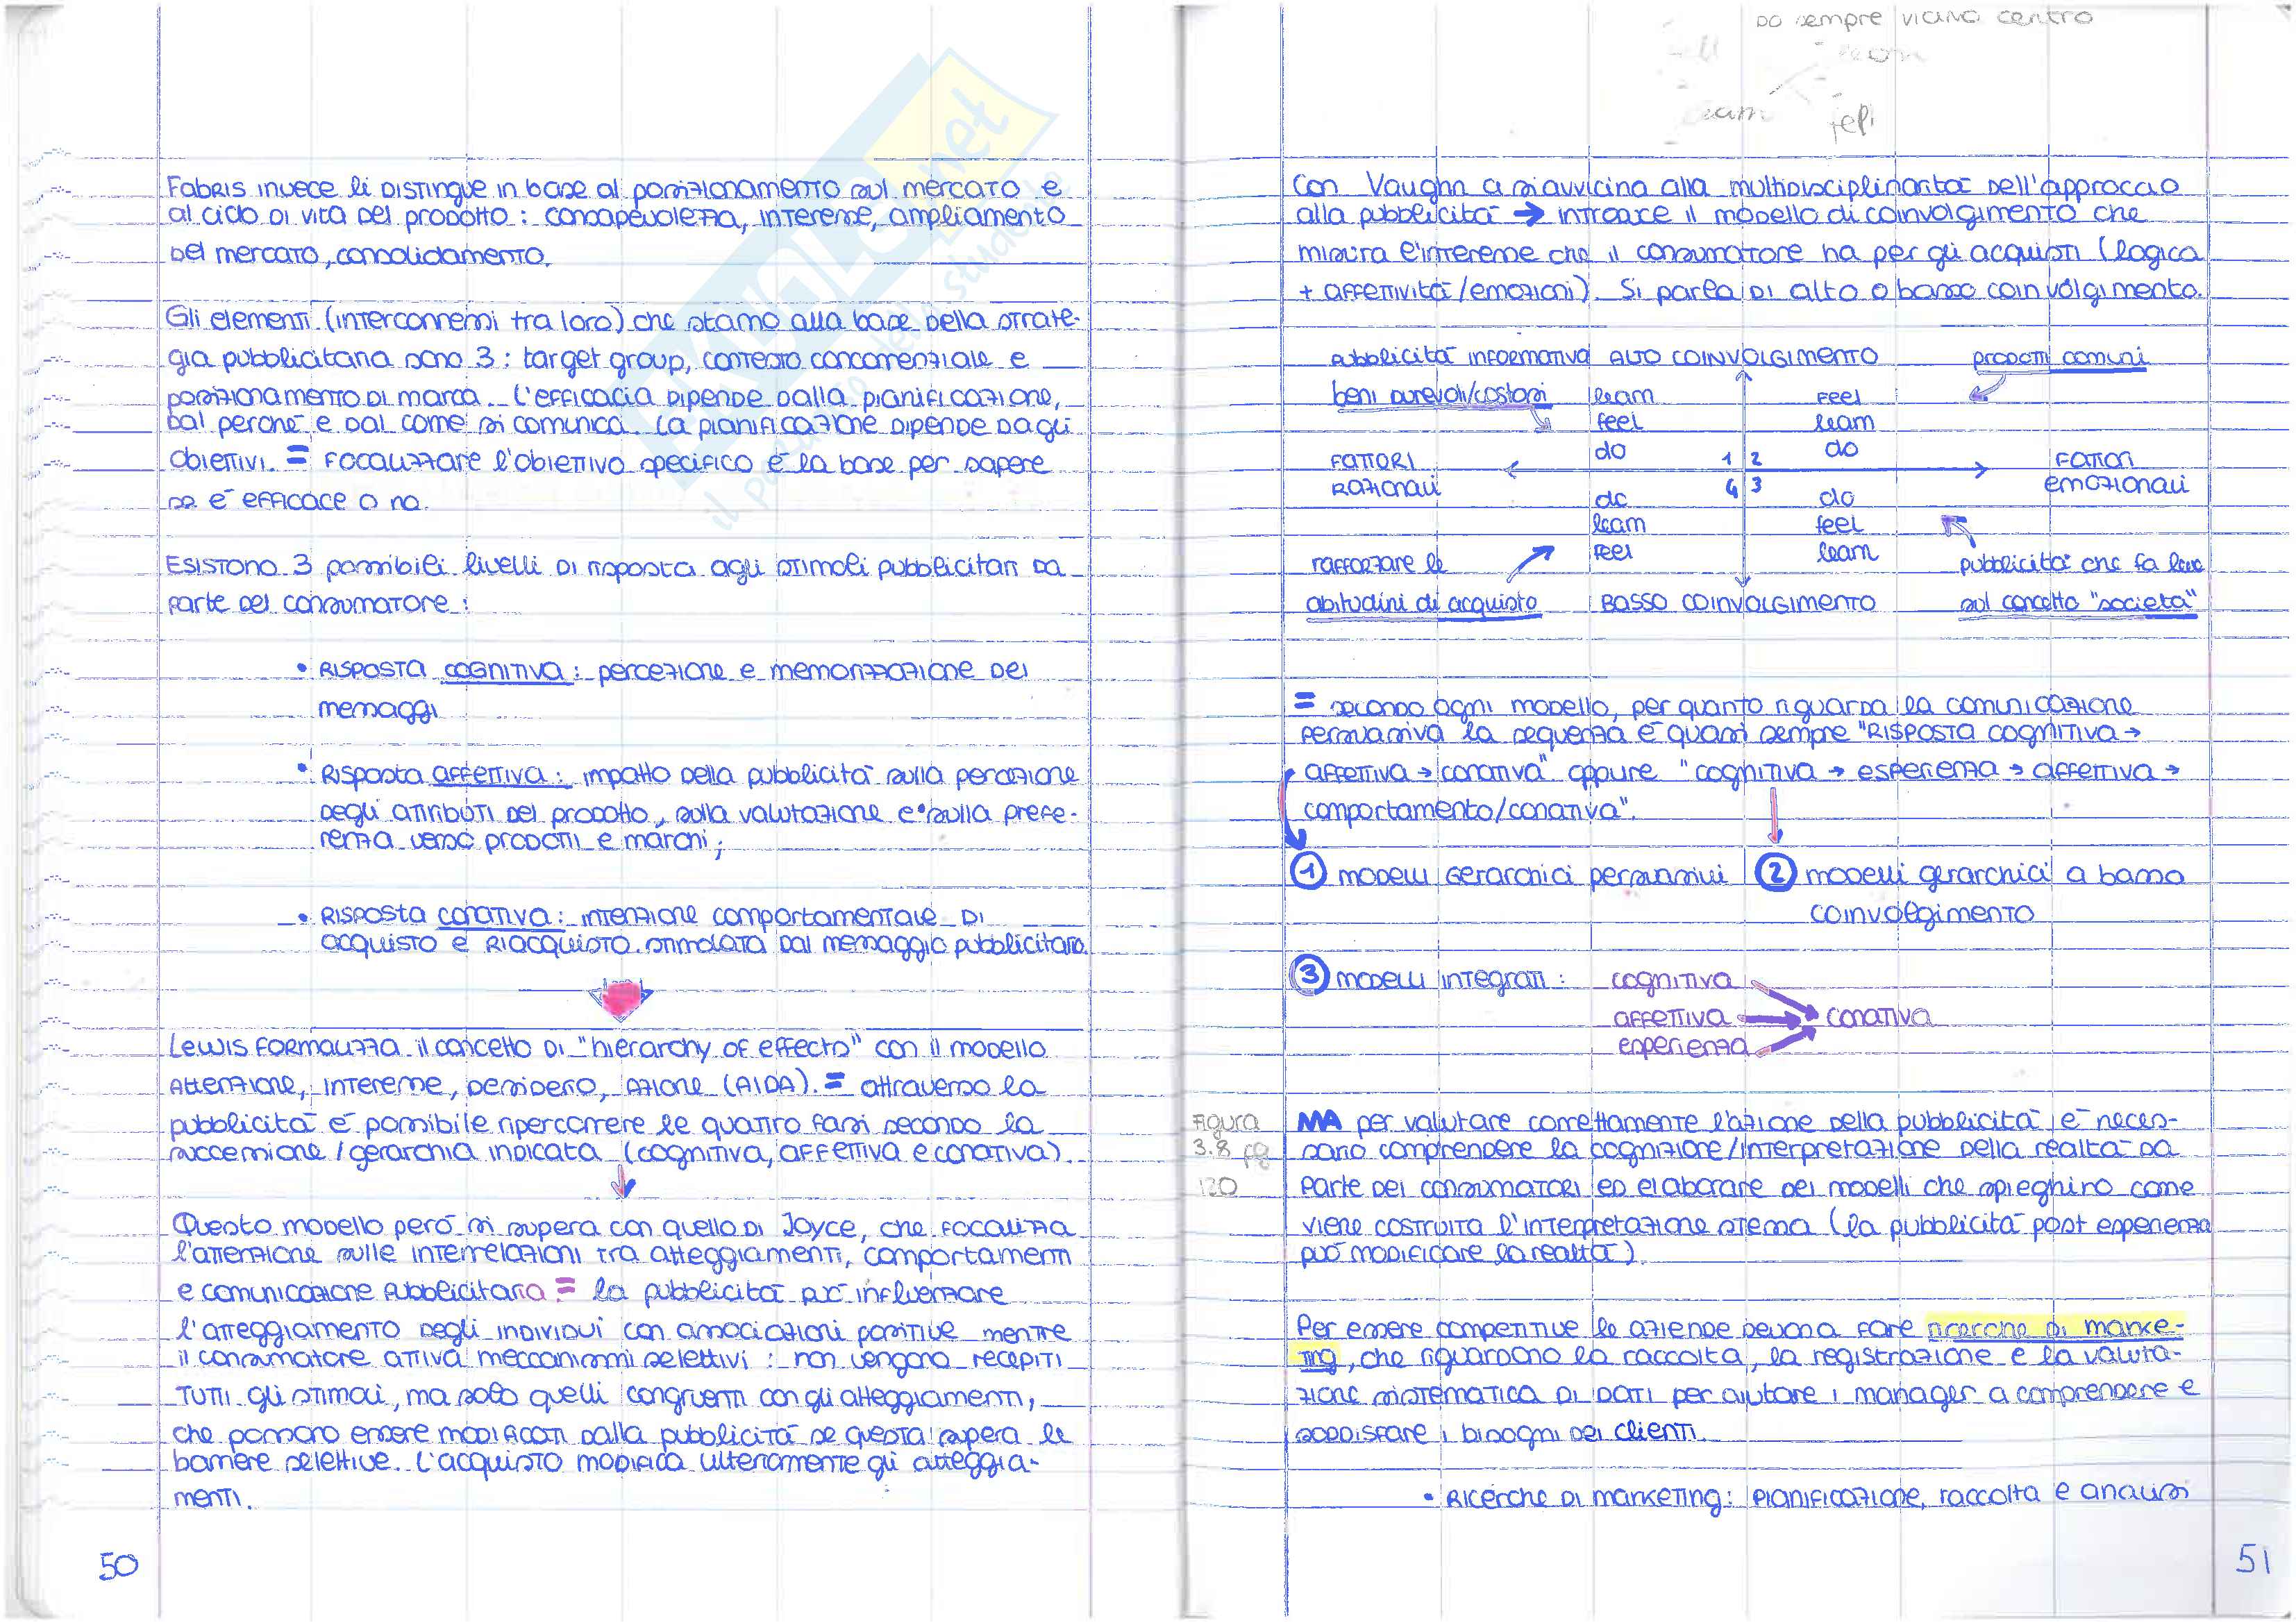 Fabris invece li distingue in base al posizionamento sul mercato e
al ciclo di vita del prodotto: consapevolezza, interesse, ampliamento
del mercato, consolidamento.
Gli elementi (interconnessi tra loro) che stanno alla base della strate-
gia pubblicitaria sono 3: target group, contesto concorrenziale e
posizionamento di marca. L'efficacia dipende dalla pianificazione,
dal perché e dal come si comunica. La pianificazione dipende dagli
obiettivi. = focalizzare l'obiettivo specifico è la base per sapere
se è efficace o no.
Esistono 3 possibili livelli di risposta agli stimoli pubblicitari da
parte del consumatore:
• Risposta cognitiva: percezione e memorizzazione dei
messaggi
• Risposta affettiva: impatto della pubblicità sulla percezione
degli attributi del prodotto, sulla valutazione e sulla prefe-
renza verso prodotti e marchi;
• Risposta conativa: intenzione comportamentale di
acquisto e riacquisto stimolata dal messaggio pubblicitario.
Lewis formalizza il concetto di "hierarchy of effects" con il modello
Attenzione, Interesse, Desiderio, Azione (AIDA). = attraverso la
pubblicità è possibile ripercorrere le quattro fasi secondo la
successione/gerarchia indicata (cognitiva, affettiva e conativa).
Questo modello però si supera con quello di Joyce, che focalizza
l'attenzione sulle interrelazioni tra atteggiamenti, comportamenti
e comunicazione pubblicitaria = la pubblicità può influenzare
l'atteggiamento degli individui con associazioni positive mentre
il consumatore attiva meccanismi selettivi: non vengono recepiti
tutti gli stimoli, ma solo quelli congruenti con gli atteggiamenti,
che possono essere modificati dalla pubblicità se questa supera le
barriere selettive. L'acquisto modifica ulteriormente gli atteggia-
menti.
50
do sempre vicino centro
learn
learn feel
Con Vaughn ci si avvicina alla multidisciplinarità dell'approccio
alla pubblicità → introduce il modello di coinvolgimento che
misura l'interesse che il consumatore ha per gli acquisti (logica
+ affettività/emozioni). Si parla di alto o basso coinvolgimento.
pubblicità informativa ALTO COINVOLGIMENTO prodotti comuni
beni durevoli/costosi learn feel
feel learn
do do
FATTORI RAZIONALI 1 2 FATTORI EMOZIONALI
4 3
do do
learn feel
feel learn
rafforzare le pubblicità che fa leva
abitudini di acquisto BASSO COINVOLGIMENTO sul concetto "società"
= secondo ogni modello, per quanto riguarda la comunicazione
persuasiva la sequenza è quasi sempre "RISPOSTA COGNITIVA →
AFFETTIVA → conativa" oppure "cognitiva → esperienza → affettiva →
comportamento/conativa".
1 modelli gerarchici persuasivi 2 modelli gerarchici a basso
coinvolgimento
3 modelli integrati: cognitiva
affettiva → conativa
esperienza
Figura
3.8 pg
120
MA per valutare correttamente l'azione della pubblicità è neces-
sario comprendere la cognizione/interpretazione della realtà da
parte dei consumatori ed elaborare dei modelli che spieghino come
viene costruita l'interpretazione stessa (la pubblicità post esperienza
può modificare la realtà).
Per essere competitive le aziende devono fare ricerche di marke-
ting, che riguardano la raccolta, la registrazione e la valuta-
zione sistematica di dati per aiutare i manager a comprendere e
soddisfare i bisogni dei clienti.
• Ricerche di marketing: pianificazione, raccolta e analisi
51